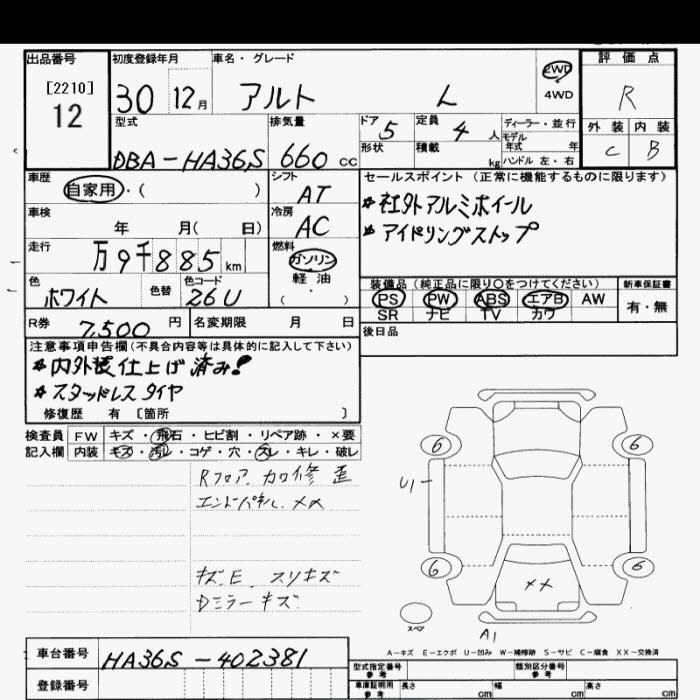 出品番号
[2210]
12
初度登録年月
30 12月
車名・グレード
アルト L
2WD
4WD
評価点
R
外装 内装
C B
型式
DBA-HA36S
排気量
660 cc
ドア 5
定員 4人
ディーラー・並行
モデル年式 年
形状
積載 kg
ハンドル 左・右
車歴
自家用・( )
シフト
AT
車検
年 月( 日)
冷房
AC
走行
万9千885km
燃料
ガソリン
軽油
( )
色
ホワイト
色替
色コード
26U
R券
7,500円
名変期限 月 日
セールスポイント(正常に機能するものに限ります)
*社外アルミホイール
*アイドリングストップ
装備品(純正品に限り○をつけてください)
PS PW ABS エアB AW
SR ナビ TV カワ
新車保証書
有・無
後日品
注意事項申告欄(不具合内容等は具体的に記入して下さい)
*内外装仕上げ済み!
*スタッドレスタイヤ
修復歴 有 [箇所 ]
検査員記入欄
FW キズ・飛石・ヒビ割・リペア跡・×要
内装 キズ・汚レ・コゲ・穴・スレ・キレ・破レ
Rフロア. カロ修 歪
エンドパネル. ××
キズ.E. スリキズ
Dミラーキズ
6 6
U1
6 6
××
スペア
A1
A-キズ E-エクボ U-凹み W-補修跡 S-サビ C-腐食 XX-交換済
車台番号
HA36S-402381
登録番号
型式指定番号 参考
類別区分番号 参考
車庫証明用 参考
長さ cm 幅 cm 高さ cm